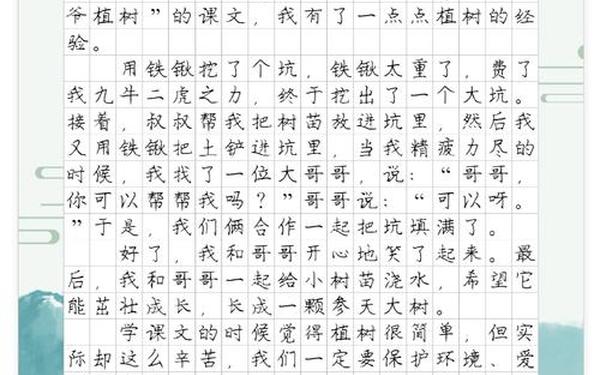 爷植树”的课文，我有了一点点植树的经
验。
用铁锹挖了个坑，铁锹太重了，费了
我九牛二虎之力，终于挖出了一个大坑。
接着，叔叔帮我把树苗放进坑里，然后我
又用铁锹把土铲进坑里，当我精疲力尽的
时候，我找了一位大哥哥，说：“哥哥，
你可以帮帮我吗？”哥哥说：“可以呀。
”于是，我们俩合作一起把坑填满了。
好了，我和哥哥开心地笑了起来。最
后，我和哥哥一起给小树苗浇水，希望它
能茁壮成长，长成一颗参天大树。
学课文的时候觉得植树很简单，但实
际却这么辛苦，我们一定要保护环境、爱